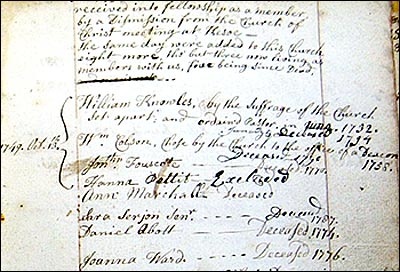 received into fellowship as a member
by a Dismission from the Church of
Christ meeting at
The same day were added to this Church
eight more, tho but three now living as
members with us, five being since Dead,
William Knowles, by the Suffrage of the Church
Set apart; and ordained Pastor 1732.
Deceased 1794
1749. Oct. 13. Wm. Cobson, Chose by the Church to the office of a Deacon
1758.
Deceased
Foscott
Hanna Pettit Excluded
Ann Marchall Deceased
Sara Serjon Senr. Deceased 1787.
Daniel Abott Deceased 1774.
Joanna Ward. Deceased 1776.